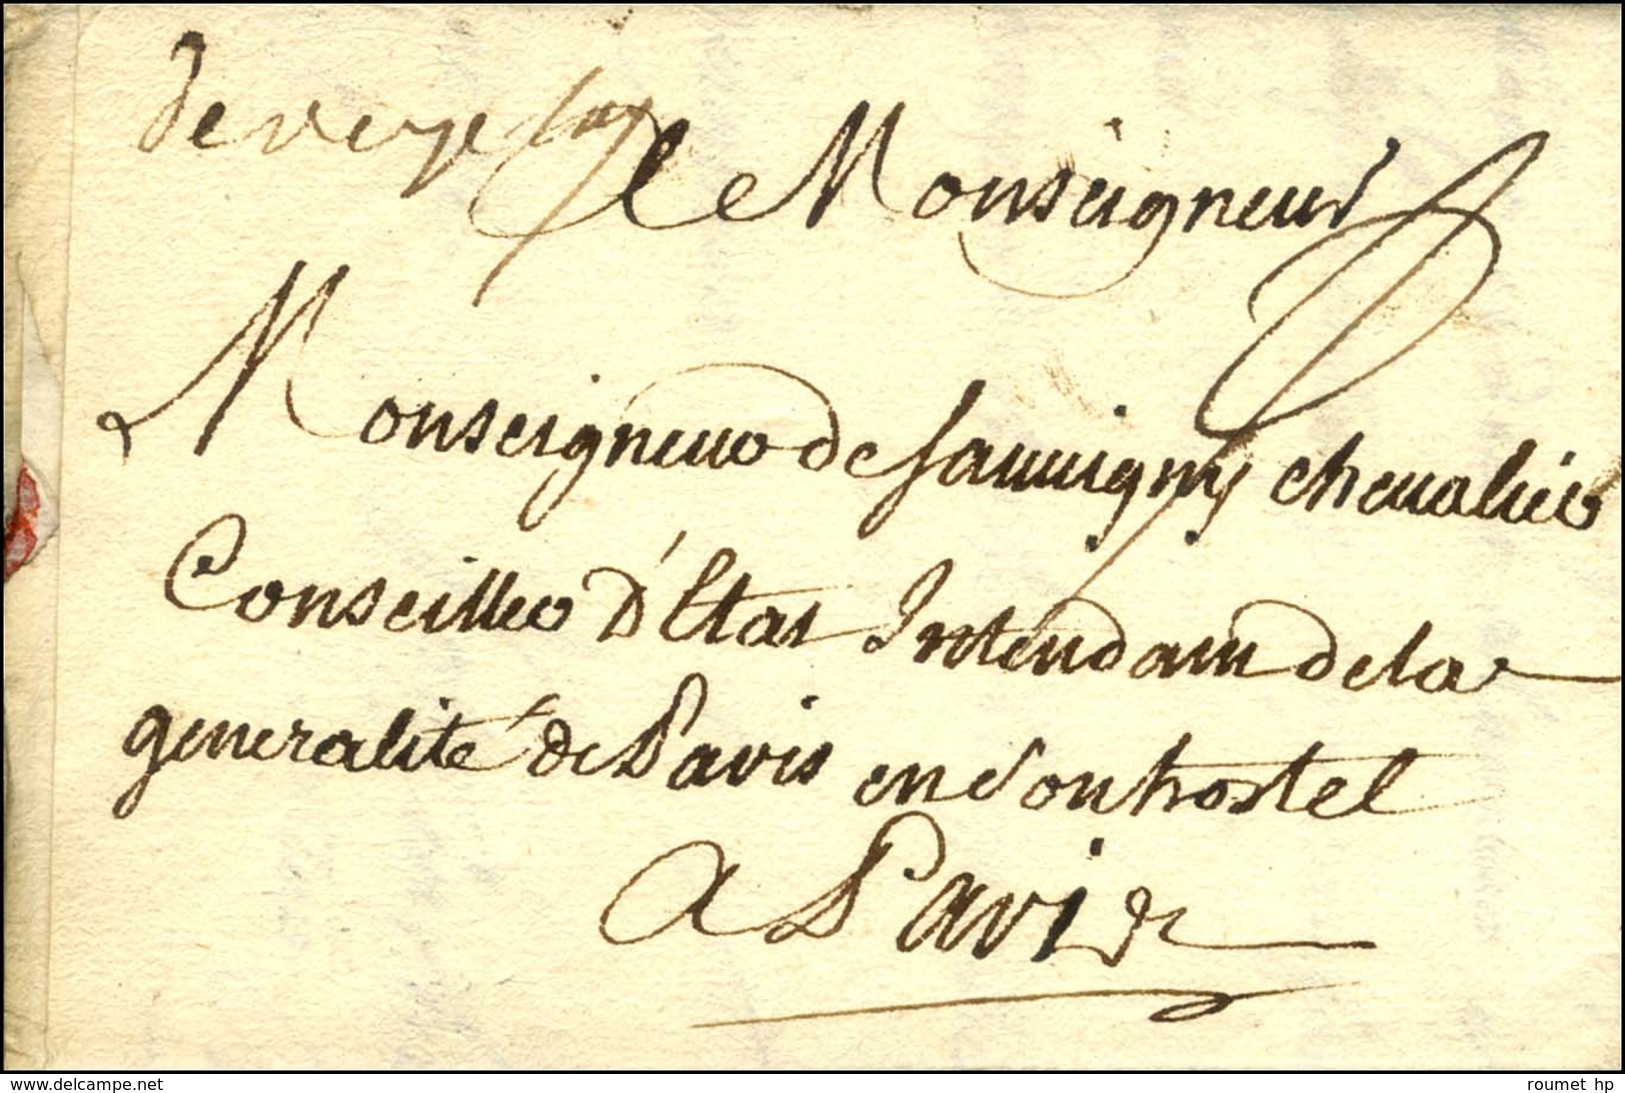 de vezelay
Monseigneur
Monseigneur de Sauvigny chevalier
Conseiller d'Etat Intendant de la
generalité de Paris en son hostel
A Paris
www.delcampe.net
roumet hp